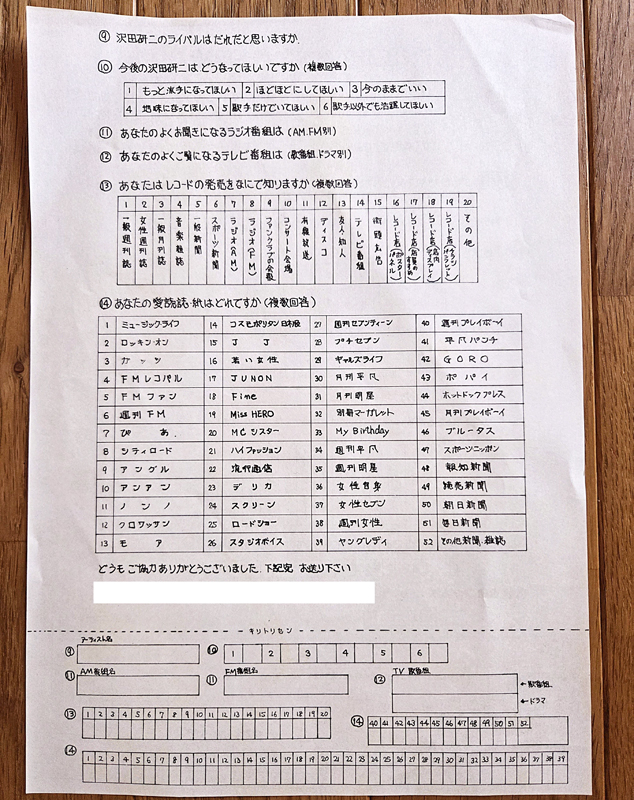 ⑨ 沢田研二のライバルはだれだと思いますか
⑩ 今後の沢田研二は どうなってほしいですか (複数回答)
1 もっと派手になってほしい 2 ほどほどにしてほしい 3 今のままでいい
4 地味になってほしい 5 歌手だけでいてほしい 6 歌手以外でも活躍してほしい
⑪ あなたのよくお聞きになるラジオ番組は (AM.FM別)
⑫ あなたのよくご覧になるテレビ番組は (歌番組.ドラマ別)
⑬ あなたは レコードの発売をなにで知りますか (複数回答)
1 2 3 4 5 6 7 8 9 10 11 12 13 14 15 16 17 18 19 20
一般週刊誌
女性週刊誌
一般月刊誌
音楽雑誌
一般新聞
スポーツ新聞
ラジオ(AM)
ラジオ(FM)
ファンクラブの会報
コンサート会場
有線放送
ディスコ
友人知人
テレビ番組
街頭広告
レコード店(ポスターパネル)
レコード店(店員のすすめ)
レコード店(店内ディスプレイ)
レコード店(チラシパンフレット)
その他
⑭ あなたの愛読誌・紙はどれですか (複数回答)
1 ミュージックライフ 14 コスモポリタン日本版 27 週刊セブンティーン 40 週刊プレイボーイ
2 ロッキン・オン 15 J J 28 プチセブン 41 平凡パンチ
3 ガッツ 16 若い女性 29 ギャルズライフ 42 GORO
4 FMレコパル 17 JUNON 30 月刊平凡 43 ポパイ
5 FMファン 18 Fine 31 月刊明星 44 ホットドックプレス
6 週刊FM 19 Miss HERO 32 別冊マーガレット 45 月刊プレイボーイ
7 ぴあ. 20 MCシスター 33 My Birthday 46 ブルータス
8 シティロード 21 ハイファッション 34 週刊平凡 47 スポーツニッポン
9 アングル 22 流行通信 35 週刊明星 48 報知新聞
10 アンアン 23 デリカ 36 女性自身 49 読売新聞
11 ノンノ 24 スクリーン 37 女性セブン 50 朝日新聞
12 クロワッサン 25 ロードショー 38 週刊女性 51 毎日新聞
13 モア 26 スタジオボイス 39 ヤングレディ 52 その他新聞.雑誌
どうも ご協力ありがとうございました. 下記宛 お送り下さい
キリトリセン
⑨ アーティスト名 ⑩ 1 2 3 4 5 6
⑪ AM番組名 ⑪ FM番組名 ⑫ TV 番組名
←歌番組
←ドラマ
⑬ 1 2 3 4 5 6 7 8 9 10 11 12 13 14 15 16 17 18 19 20
⑭ 40 41 42 43 44 45 46 47 48 49 50 51 52
⑭ 1 2 3 4 5 6 7 8 9 10 11 12 13 14 15 16 17 18 19 20 21 22 23 24 25 26 27 28 29 30 31 32 33 34 35 36 37 38 39